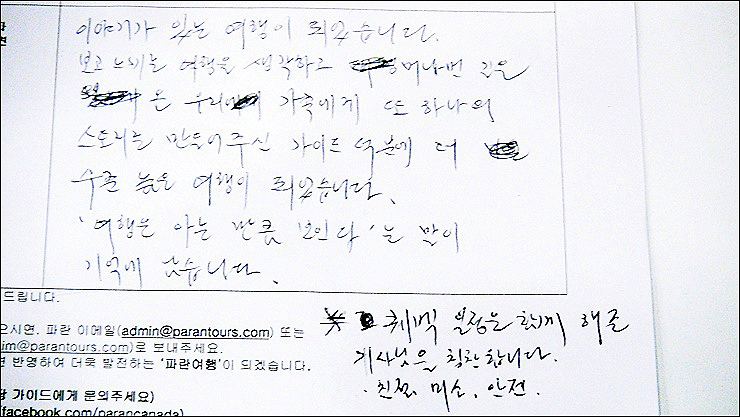 이야기가 있는 여행이 되었습니다.
보고 느끼는 여행을 생각하고 머나먼 길을
온 우리 가족에게 또 하나의
스토리를 만들어주신 가이드 덕분에 더
수준 높은 여행이 되었습니다.
'여행은 아는 만큼 보인다'는 말이
기억에 남습니다.
드립니다.
으시면, 파란 이메일(admin@parantours.com) 또는
im@parantours.com)로 보내주세요.
면 반영하여 더욱 발전하는 '파란여행'이 되겠습니다.
당 가이드에게 문의주세요)
facebook.com/parancanada)
* 퀘벡 일정을 함께 해준
기사님을 칭찬합니다.
친절, 미소, 안전.